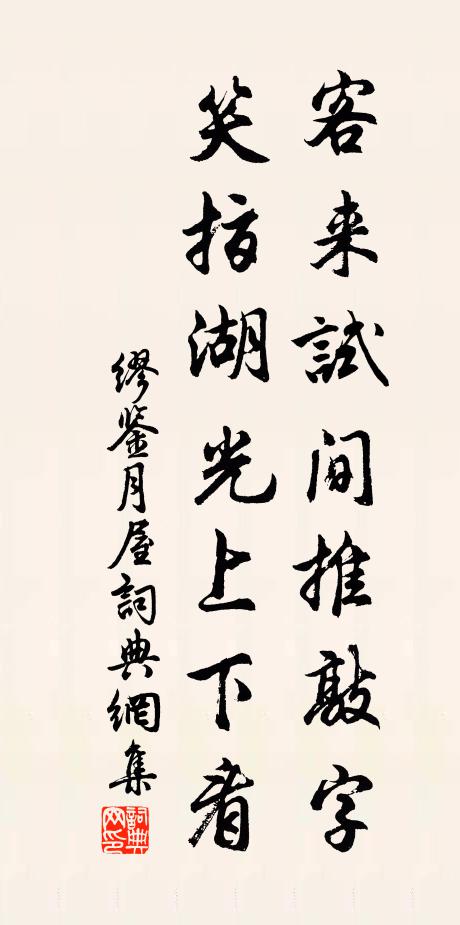 客来試间推敲字
笑指湖光上下看
繆鑒月屋詞典網集
詞典
网印